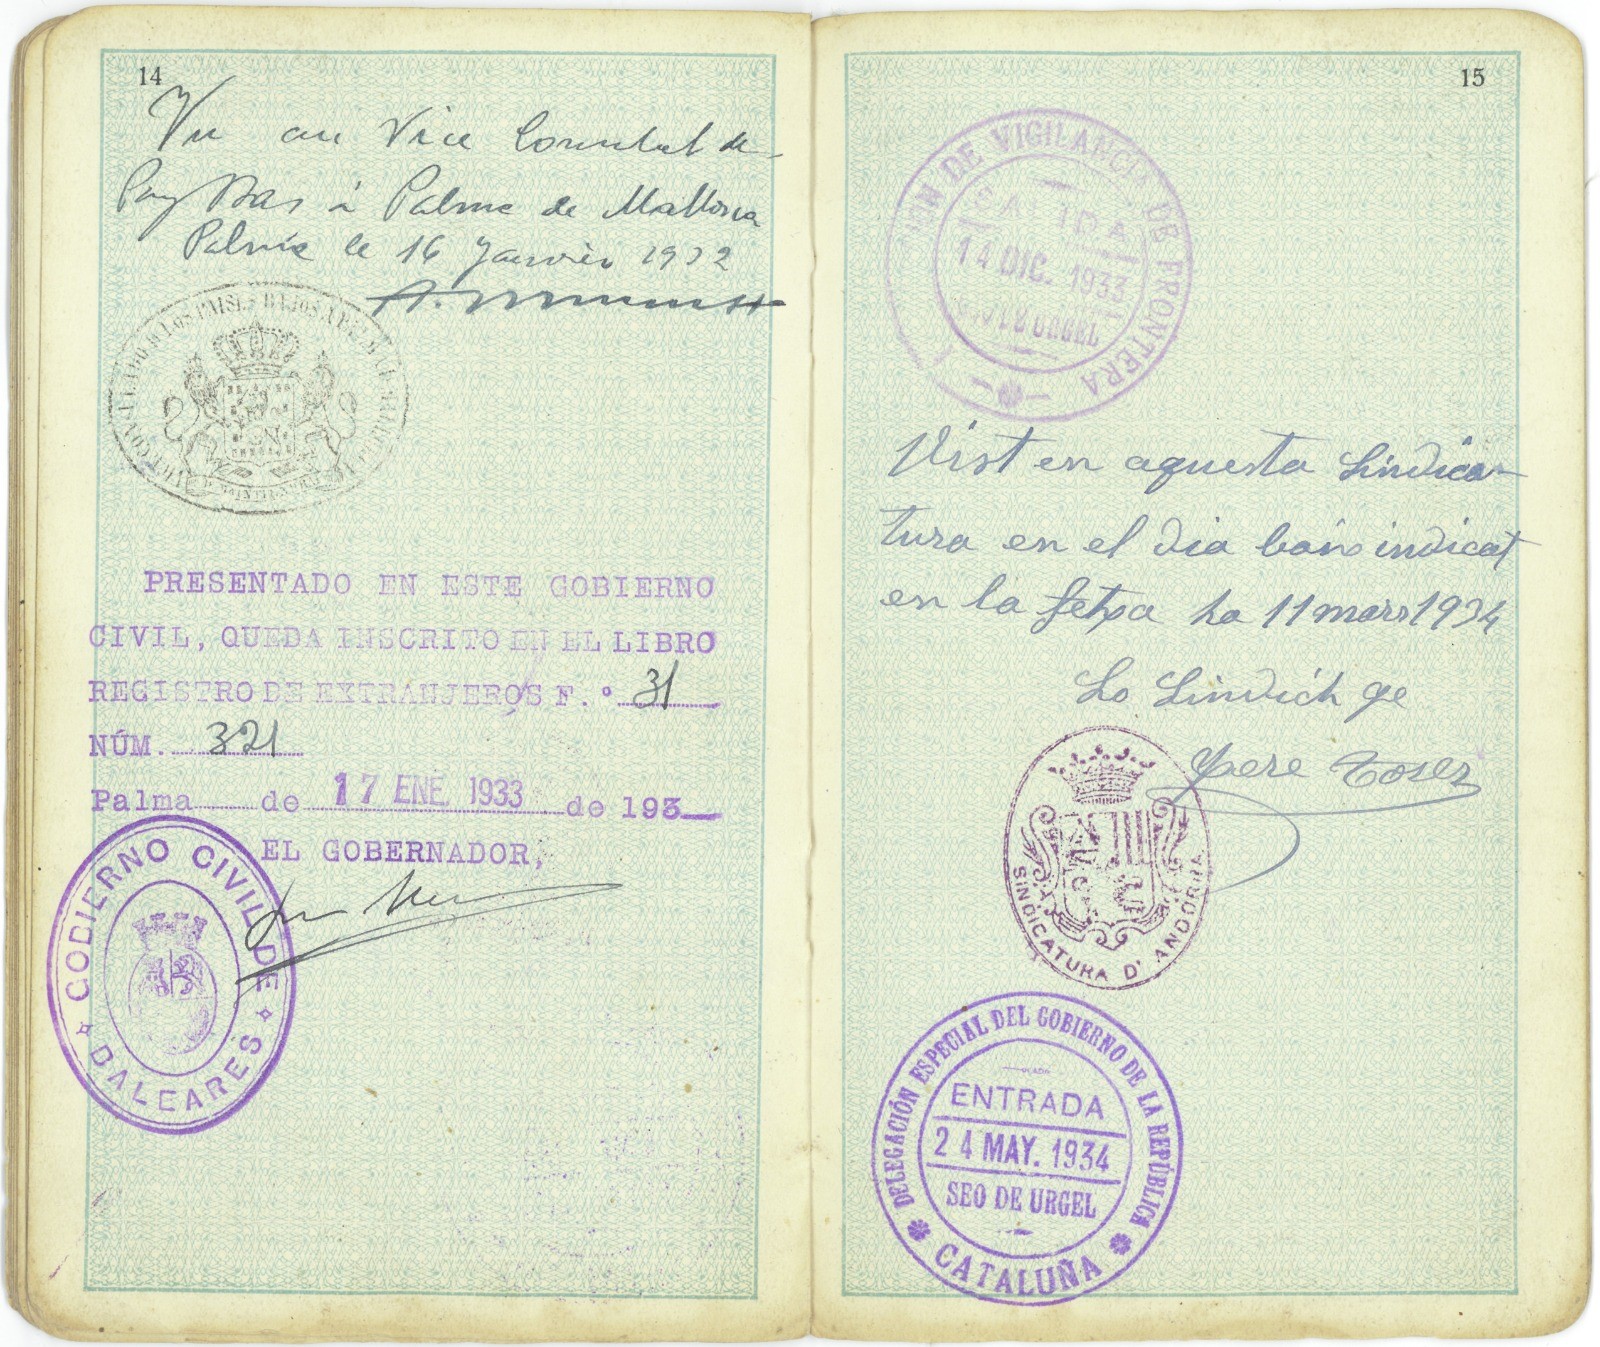 14
Vu au Vice Consulat de
Pays Bas à Palma de Mallorca
Palma le 16 Janvier 1932
VICECONSULADO DE LOS PAISES BAJOS
PRESENTADO EN ESTE GOBIERNO
CIVIL, QUEDA INSCRITO EN EL LIBRO
REGISTRO DE EXTRANJEROS F.º 31
NÚM. 321
Palma de 17 ENE 1933 de 193
EL GOBERNADOR,
GOBIERNO CIVIL DE
BALEARES
15
DE VIGILANCIA DE FRONTERA
SALIDA
14 DIC. 1933
SEO DE URGEL
Vist en aquesta Sindica-
tura en el dia baix indicat
en la fetxa ha 11 mars 1934
Lo Sindich ge
Pere
SINDICATURA D' ANDORRA
DELEGACIÓN ESPECIAL DEL GOBIERNO DE LA REPÚBLICA
ENTRADA
24 MAY. 1934
SEO DE URGEL
CATALUÑA